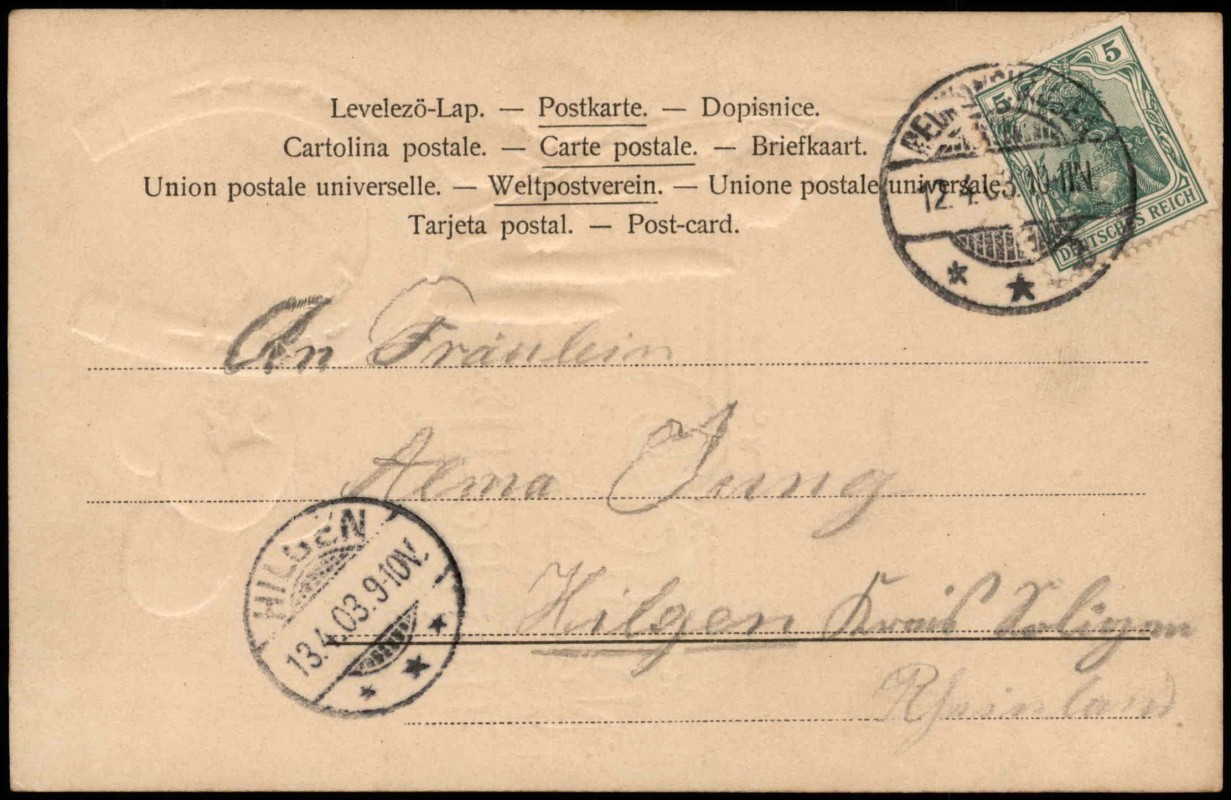 Levelezö-Lap. — Postkarte. — Dopisnice.
Cartolina postale. — Carte postale. — Briefkaart.
Union postale universelle. — Weltpostverein. — Unione postale universale.
Tarjeta postal. — Post-card.
5
5
DEUTSCHES REICH
12.4.03. 10-11N.
An Fräulein
Alma Jung
Hilgen Kreis Soligen
Rheinland.
HILGEN
13.4.03.9-10V.